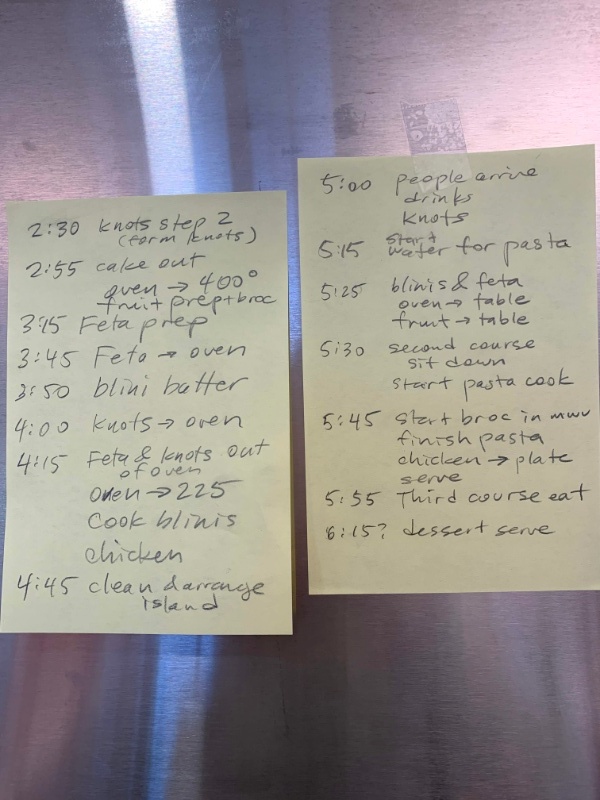 2:30 knots step 2
(form knots)
2:55 cake out
oven → 400°
fruit prep + broc
3:15 Feta prep
3:45 Feta → oven
3:50 blini batter
4:00 knots → oven
4:15 Feta & knots out
of oven
oven → 225
cook blinis
chicken
4:45 clean & arrange
island
5:00 people arrive
drinks
knots
5:15 start
water for pasta
5:25 blinis & feta
oven → table
fruit → table
5:30 second course
sit down
start pasta cook
5:45 start broc in mwv
finish pasta
chicken → plate
serve
5:55 Third course eat
6:15? dessert serve